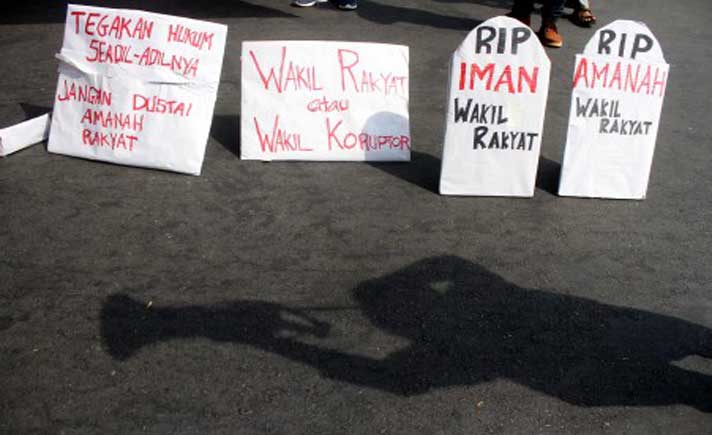 TEGAKAN HUKUM
SEADIL-ADILNYA
JANGAN DUSTAI
AMANAH
RAKYAT
WAKIL RAKYAT
atau
WAKIL KORUPTOR
RIP
IMAN
WAKIL
RAKYAT
RIP
AMANAH
WAKIL
RAKYAT